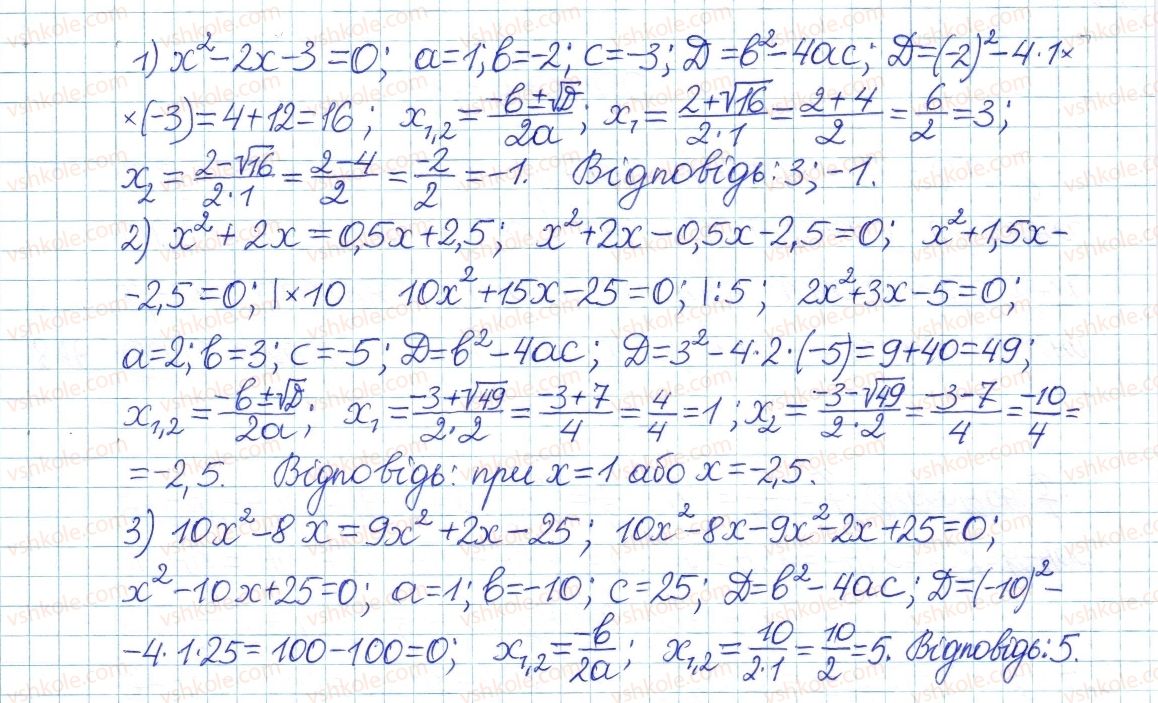 1) x² - 2x - 3 = 0; a = 1; в = -2; c = -3; Д = в² - 4ac; Д = (-2)² - 4·1×
×(-3) = 4 + 12 = 16; x₁,₂ = (-в ± √Д)/(2a); x₁ = (2 + √16)/(2·1) = (2 + 4)/2 = 6/2 = 3;
x₂ = (2 - √16)/(2·1) = (2 - 4)/2 = -2/2 = -1. Відповідь: 3; -1.
2) x² + 2x = 0,5x + 2,5; x² + 2x - 0,5x - 2,5 = 0; x² + 1,5x -
- 2,5 = 0; |×10 10x² + 15x - 25 = 0; |:5; 2x² + 3x - 5 = 0;
a = 2; в = 3; c = -5; Д = в² - 4ac; Д = 3² - 4·2·(-5) = 9 + 40 = 49;
x₁,₂ = (-в ± √Д)/(2a); x₁ = (-3 + √49)/(2·2) = (-3 + 7)/4 = 4/4 = 1; x₂ = (-3 - √49)/(2·2) = (-3 - 7)/4 = -10/4 =
= -2,5. Відповідь: при x = 1 або x = -2,5.
3) 10x² - 8x = 9x² + 2x - 25; 10x² - 8x - 9x² - 2x + 25 = 0;
x² - 10x + 25 = 0; a = 1; в = -10; c = 25; Д = в² - 4ac; Д = (-10)² -
- 4·1·25 = 100 - 100 = 0; x₁,₂ = -в/(2a); x₁,₂ = 10/(2·1) = 10/2 = 5. Відповідь: 5.